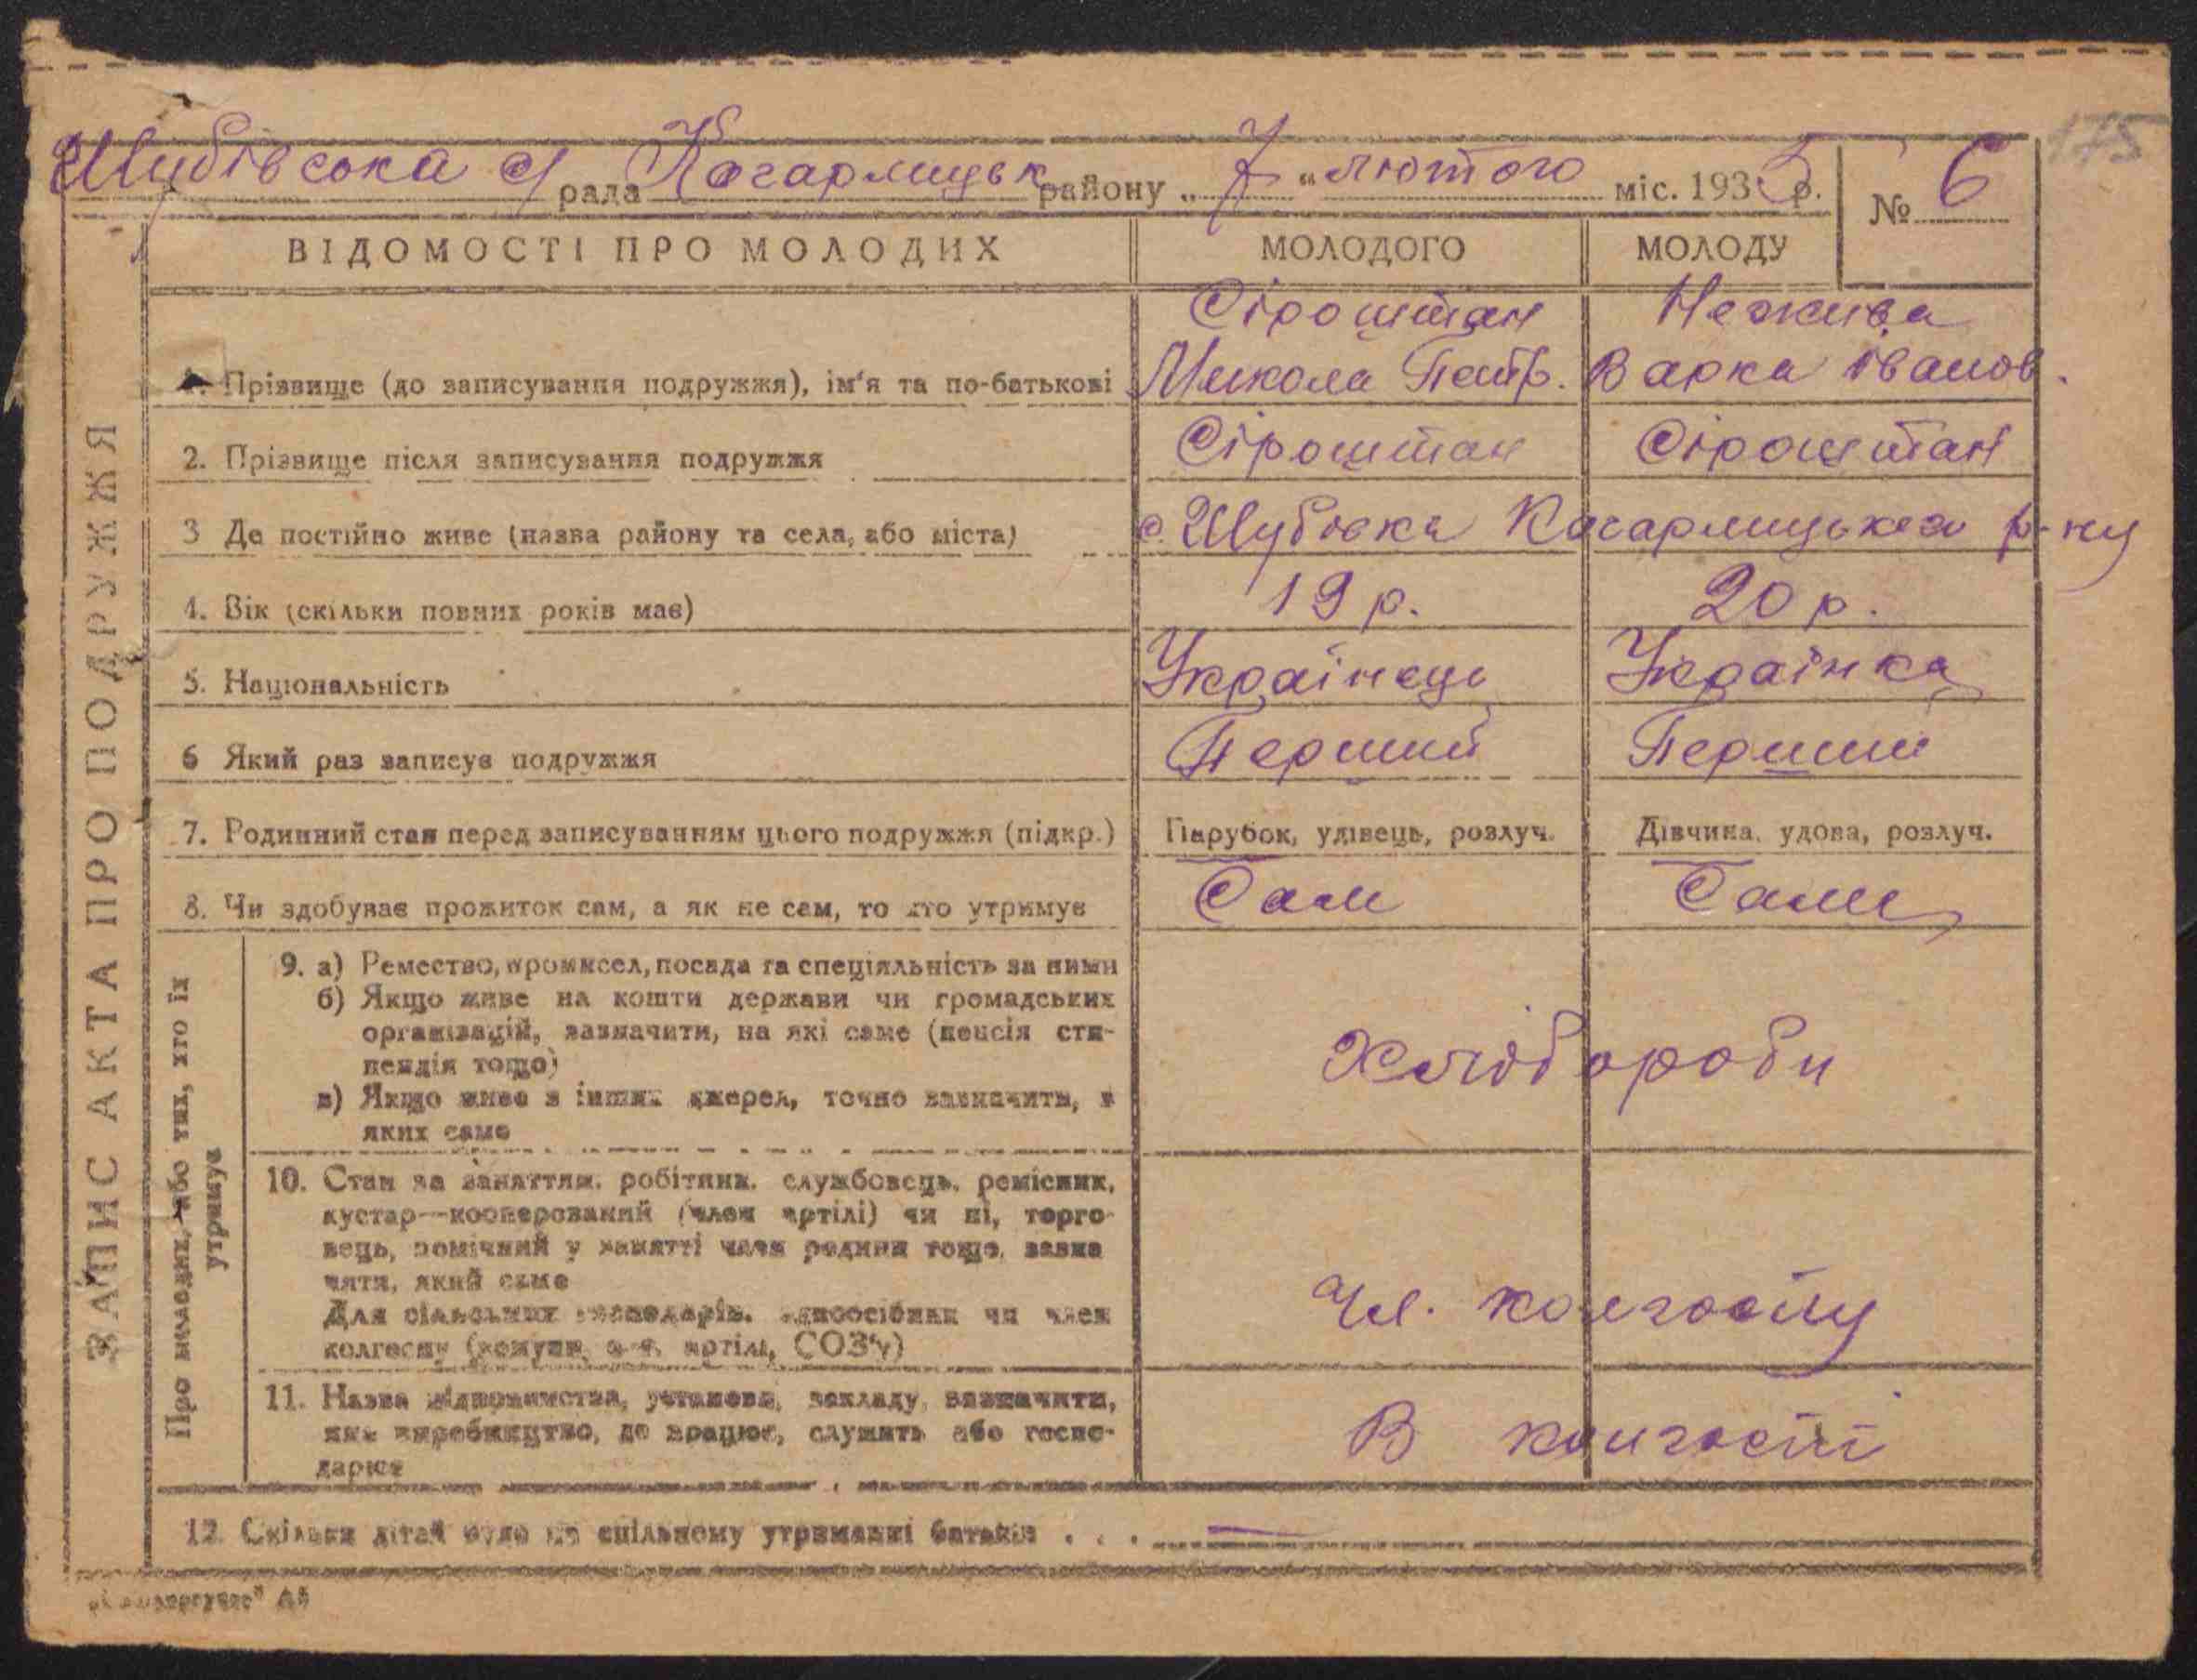 175
Шубівська с/рада Кагарлицьк району „7“ лютого міс. 1935 р. № 6
ЗАПИС АКТА ПРО ПОДРУЖЖЯ
ВІДОМОСТІ ПРО МОЛОДИХ МОЛОДОГО МОЛОДУ
Сіроштан Нежива
1. Прізвище (до записування подружжя), ім'я та по-батькові Микола Петр. Варка Іванов.
2. Прізвище після записування подружжя Сіроштан Сіроштан
3 Де постійно живе (назва району та села, або міста) с. Шубівка Кагарлицького р-ну
4. Вік (скільки повних років має) 19 р. 20 р.
5. Національність Українець Українка
6 Який раз записує подружжя Перший Перший
7. Родинний стан перед записуванням цього подружжя (підкр.) Парубок, удівець, розлуч. Дівчина, удова, розлуч.
8. Чи здобуває прожиток сам, а як не сам, то хто утримує Сам Сама
Про молодих, або тих, хто їх
утримує
9. а) Ремество, промисел, посада та спеціяльність за ними
б) Якщо живе на кошти держави чи громадських
організацій, зазначити, на які саме (пенсія сти-
пендія тощо)
в) Якщо живе з інших джерел, точно зазначити, з
яких саме
Хлібороби
10. Стан за заняттям: робітник, службовець, ремісник,
кустар—кооперований (член артілі) чи ні, торго-
вець, помічний у занятті член родини тощо, зазна
чити, який саме
Для сільських господарів: одноосібник чи член
колгоспу (комуни, с.-г. артілі, СОЗ'у)
Чл. колгоспу
11. Назва підприємства, установи, закладу, зазначити,
яке виробництво, де працює, служить або госпо-
дарює
В колгоспі
12. Скільки дітей було на спільному утриманні батьків . . . —